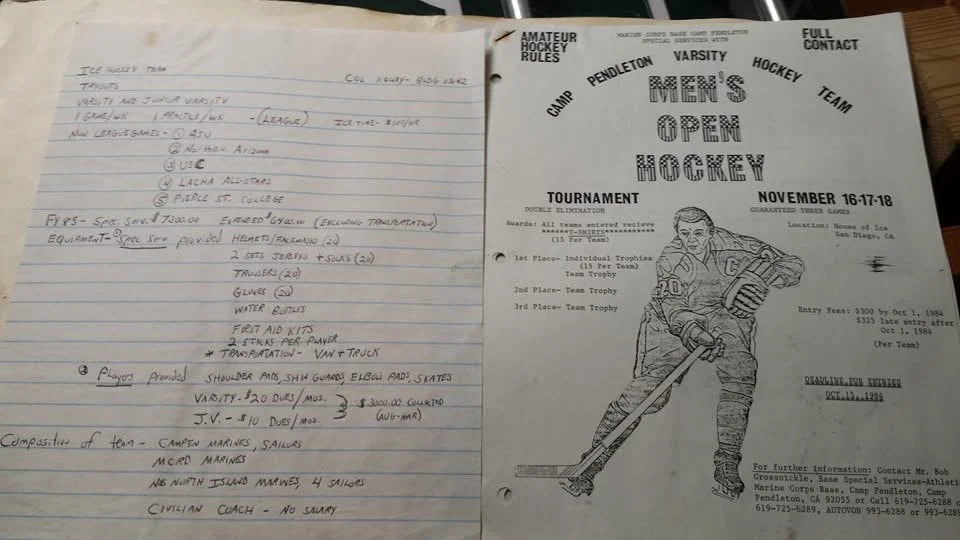 ICE HOCKEY TEAM
TRYOUTS
VARSITY AND JUNIOR VARSITY
1 GAME/WK 1 PRACTICE/WK - (LEAGUE) ICE TIME-
NON LEAGUE GAMES - ① ASU
② Northern Arizona
③ USC
④ LACHA ALL-STARS
⑤ PIERCE ST. COLLEGE
FY85 - Spec. Serv. $7200.00 EXPENDED $6400.00 (EXCLUDING TRANSPORTATION)
EQUIPMENT - ① Spec Serv provided HELMETS/FACEMASKS (20)
2 SETS JERSEYS + SOCKS (20)
TROUSERS (20)
GLOVES (20)
WATER BOTTLES
FIRST AID KITS
2 STICKS PER PLAYER
* TRANSPORTATION - VAN + TRUCK
② Players provided SHOULDER PADS, SHIN GUARDS, ELBOW PADS, SKATES
VARSITY - $20 DUES/MOS.
J.V. - $10 DUES/MOS.
$3000.00 COLLECTED
(AUG-MAR)
Composition of team - CAMPEN MARINES, SAILORS
MCRD MARINES
NORTH ISLAND MARINES, 4 SAILORS
CIVILIAN COACH - NO SALARY
AMATEUR
HOCKEY
RULES
MARINE CORPS BASE CAMP PENDLETON
SPECIAL SERVICES WITH
FULL
CONTACT
CAMP PENDLETON VARSITY HOCKEY TEAM
MEN'S
OPEN
HOCKEY
TOURNAMENT
DOUBLE ELIMINATION
NOVEMBER 16-17-18
GUARANTEED THREE GAMES
Awards: All teams entered recieve
******T-SHIRTS***********
(15 Per Team)
Location: House of Ice
San Diego, CA
1st Place- Individual Trophies
(15 Per Team)
Team Trophy
2nd Place- Team Trophy
3rd Place- Team Trophy
C
20
Entry Fees: $300 by Oct 1, 1984
$325 late entry after
Oct 1, 1984
(Per Team)
DEADLINE FOR ENTRIES
OCT.15, 1984
For further information: Contact Mr. Bob
Grossnickle, Base Special Services-Athleti
Marine Corps Base, Camp Pendleton, Camp
Pendleton, CA 92055 or Call 619-725-6288
619-725-6289, AUTOVON 993-6288 or 993-628